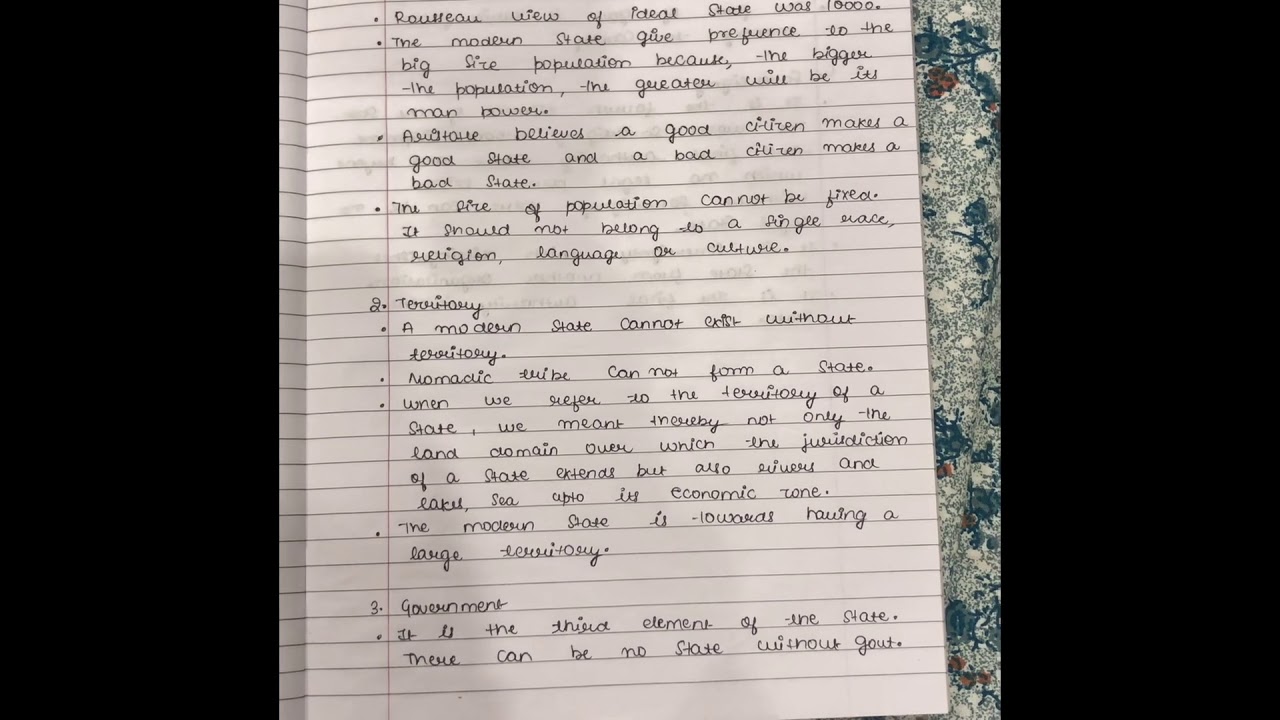 • Rousseau view of ideal state was 10000.
• The modern state give prefrence to the
big size population because, the bigger
the population, the greater will be its
man power.
• Aristotle believes a good citizen makes a
good state and a bad citizen makes a
bad state.
• The size of population cannot be fixed.
It should not belong to a single race,
religion, language or culture.
2. Territory
• A modern state cannot exist without
territory.
• Nomadic tribe can not form a state.
• when we refer to the territory of a
state, we meant thereby not only the
land domain over which the jurisdiction
of a state extends but also rivers and
lakes, sea upto its economic zone.
• The modern state is towards having a
large territory.
3. Government
• It is the third element of the state.
There can be no state without govt.